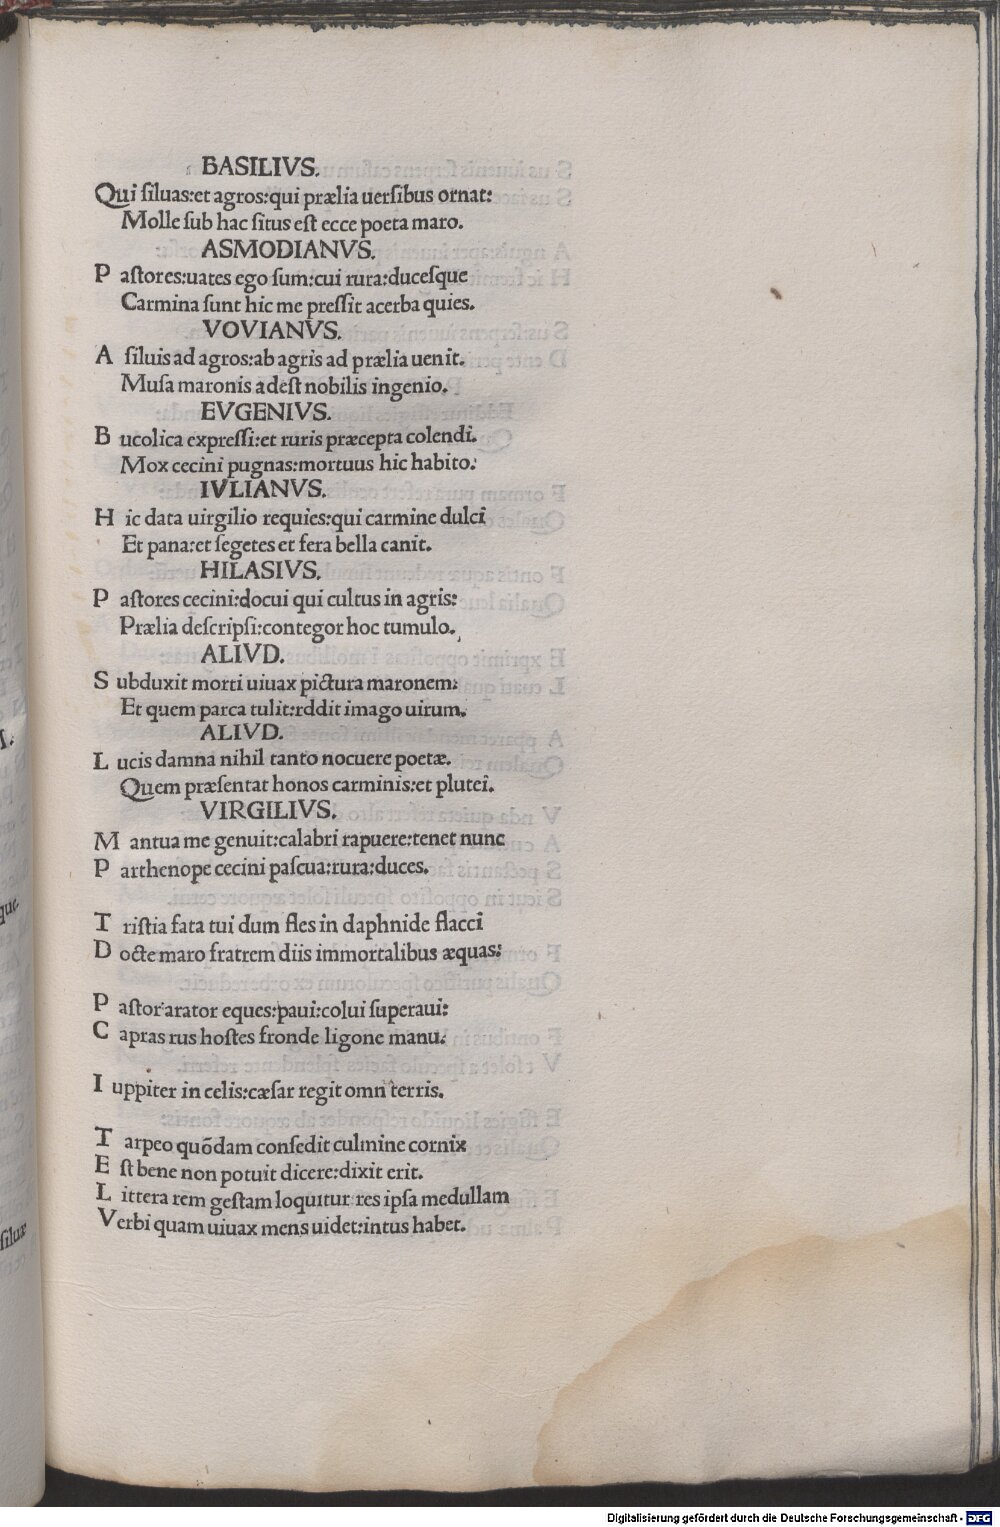 BASILIVS.
Qui siluas:et agros:qui prælia uersibus ornat:
Molle sub hac situs est ecce poeta maro.
ASMODIANVS.
P astores:uates ego sum:cui rura:ducesque
Carmina sunt hic me pressit acerba quies.
VOVIANVS.
A siluis ad agros:ab agris ad prælia uenit.
Musa maronis adest nobilis ingenio.
EVGENIVS.
B ucolica expressi:et ruris præcepta colendi.
Mox cecini pugnas:mortuus hic habito:
IVLIANVS.
H ic data uirgilio requies:qui carmine dulci
Et pana:et segetes et fera bella canit.
HILASIVS.
P astores cecini:docui qui cultus in agris:
Prælia descripsi:contegor hoc tumulo.
ALIVD.
S ubduxit morti uiuax pictura maronem:
Et quem parca tulit:rddit imago uirum.
ALIVD.
L ucis damna nihil tanto nocuere poetæ.
Quem præsentat honos carminis:et plutei.
VIRGILIVS.
M antua me genuit:calabri rapuere:tenet nunc
P arthenope cecini pascua:rura:duces.
T ristia fata tui dum fles in daphnide flacci
D octe maro fratrem diis immortalibus æquas:
P astor arator eques:paui:colui superaui:
C apras rus hostes fronde ligone manu:
I uppiter in celis:cæsar regit omn terris.
T arpeo quōdam consedit culmine cornix
E st bene non potuit dicere:dixit erit.
L ittera rem gestam loquitur res ipsa medullam
V erbi quam uiuax mens uidet:intus habet.
que.
siluæ
Digitalisierung gefördert durch die Deutsche Forschungsgemeinschaft - DFG